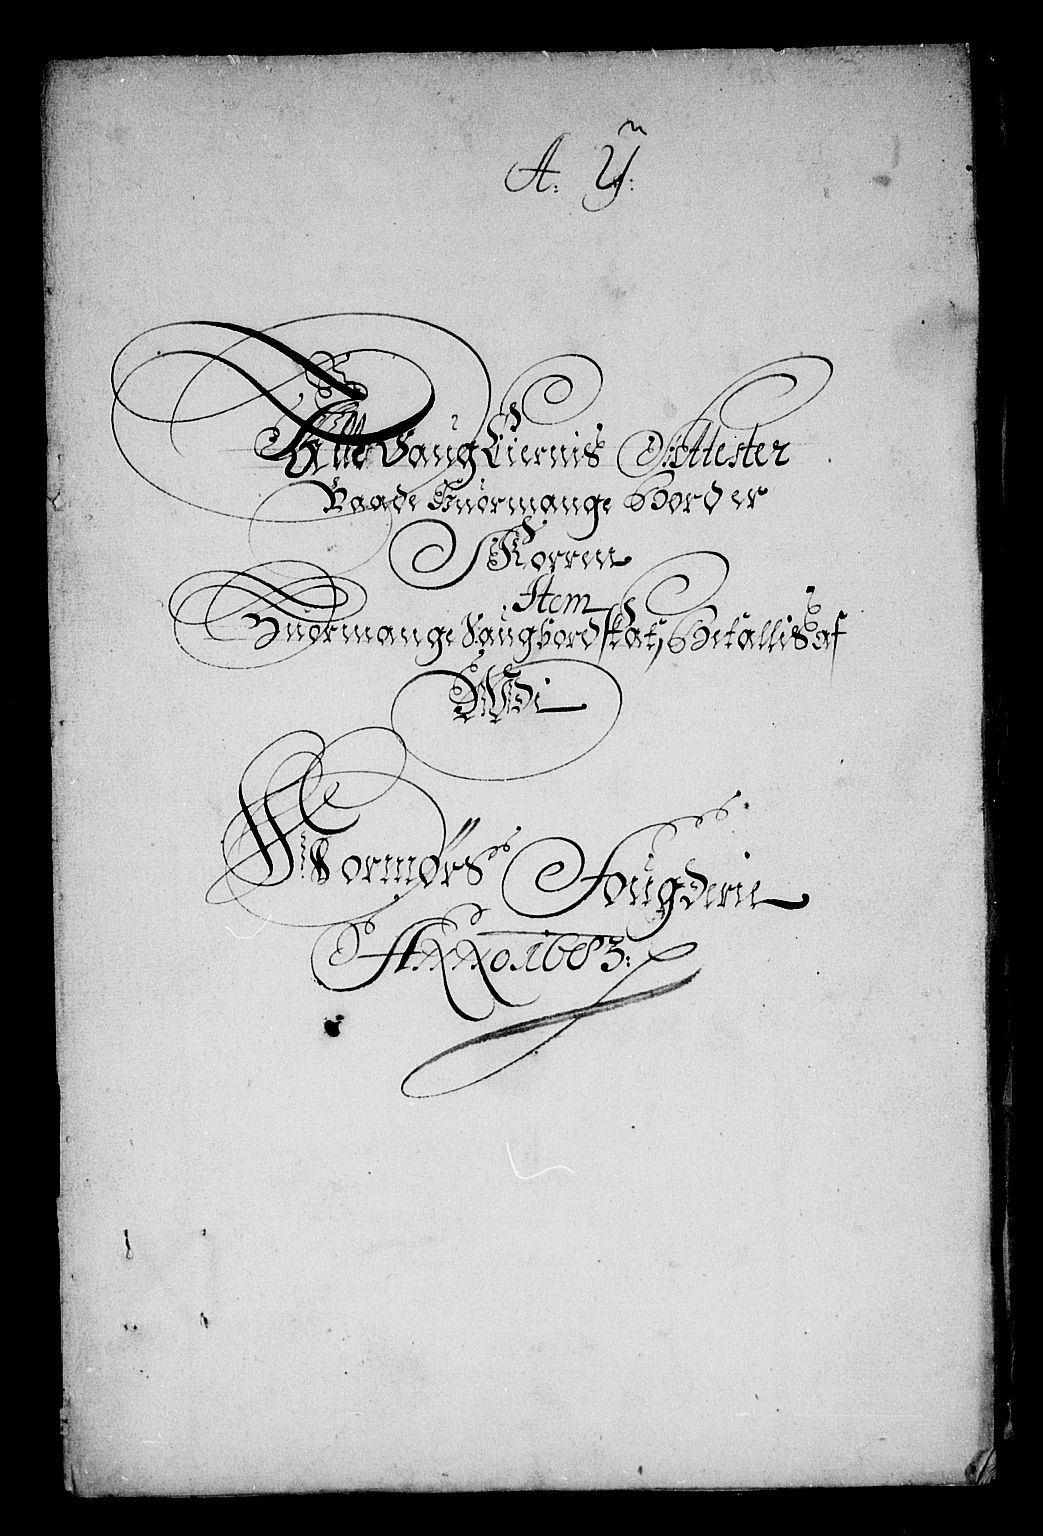 A: Ÿ:
Alle Saug Eiernis Attester
Paade huormange Bord er
Skorren
Item
Huormange Saugbord skat, Betallis af
Udi
Normørs Fougderie
Anno 1683: